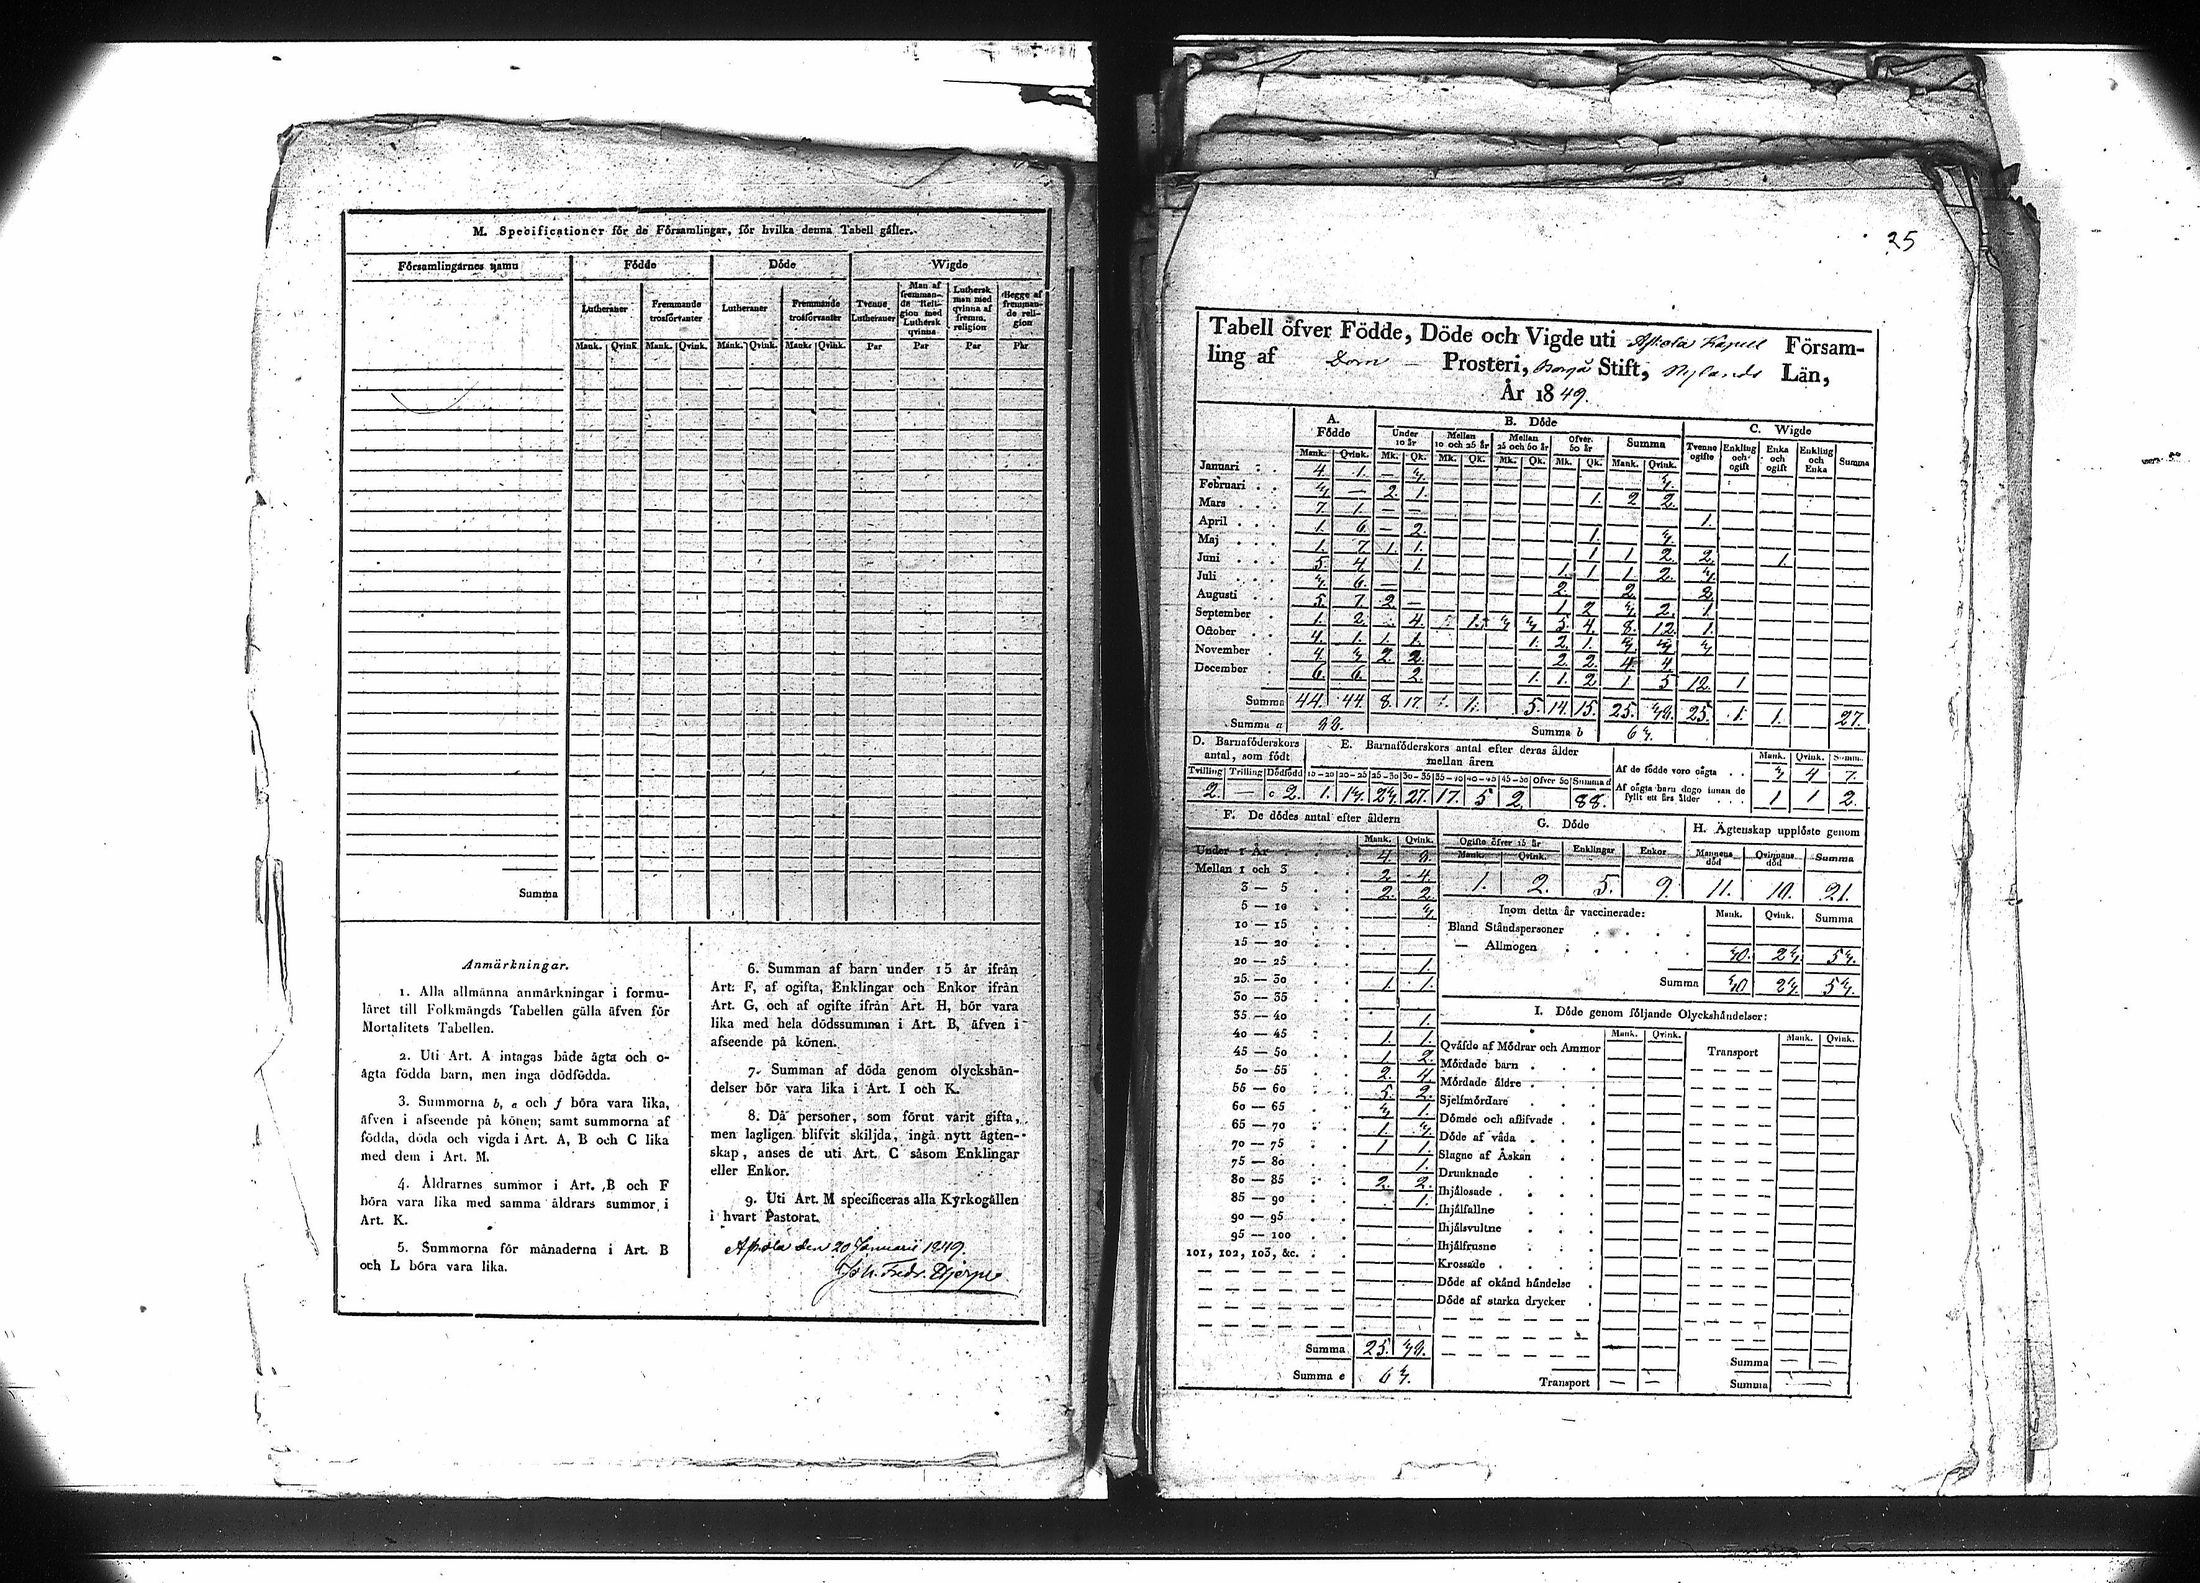 M. Specificationer för de Församlingar, för hvilka denna Tabell gäller.
Församlingarnes namn Födde Döde Wigde
Lutheraner Fremmande trosförvanter Lutheraner Fremmande trosförvanter Tvenne Lutheraner Man af fremmande Religion med Luthersk qvinna Luthersk man med qvinna af fremm. religion Begge af fremmande religion
Mank. Qvink. Mank. Qvink. Mank. Qvink. Mank. Qvink. Par Par Par Par
Summa
Anmärkningar.
1. Alla allmänna anmärkningar i formu-
läret till Folkmängds Tabellen gälla äfven för
Mortalitets Tabellen.
2. Uti Art. A intagas både ägta och o-
ägta födda barn, men inga dödfödda.
3. Summorna b, e och f böra vara lika,
äfven i afseende på könen; samt summorna af
födda, döda och vigda i Art. A, B och C lika
med dem i Art. M.
4. Åldrarnes summor i Art. B och F
böra vara lika med samma åldrars summor i
Art. K.
5. Summorna för månaderna i Art. B
och L böra vara lika.
6. Summan af barn under 15 år ifrån
Art. F, af ogifta, Enklingar och Enkor ifrån
Art. G, och af ogifte ifrån Art. H, bör vara
lika med hela dödssumman i Art. B, äfven i
afseende på könen.
7. Summan af döda genom olyckshän-
delser bör vara lika i Art. I och K.
8. Då personer, som förut varit gifta,
men lagligen blifvit skiljda, ingå nytt ägten-
skap, anses de uti Art. C såsom Enklingar
eller Enkor.
9. Uti Art. M specificeras alla Kyrkogällen
i hvart Pastorat.
Askola den 20 Januarii 1849.
Joh. Fredr.
25
Tabell öfver Födde, Döde och Vigde uti Askola Kapell Försam-
ling af Dom Prosteri, Borgå Stift, Nylands Län,
År 1849.
A. Födde B. Döde C. Wigde
Under 10 år Mellan 10 och 25 år Mellan 25 och 60 år Öfver 60 år Summa Tvenne ogifte Enkling och ogift Enka och ogift Enkling och Enka Summa
Mank. Qvink. Mk. Qk. Mk. Qk. Mk. Qk. Mk. Qk. Mank. Qvink.
Januari 4. 1. — 3. 3.
Februari 3. — 2. 1. 1. 2 2.
Mars 7. 1. — — 1.
April 1. 6. — 2. 1. 3.
Maj 1. 7. 1. 1. 1 1 2. 2. 1.
Juni 5. 4. 1. 1. 1 1 2. 3.
Juli 3. 6. — 2. 2. 2.
Augusti 5. 7. 2. — 1. 2 3. 2. 1.
September 1. 2. 4. 1. 3. 3. 5. 4. 8. 12. 1.
October 4. 1. 1. 1. 1. 2. 1. 3. 3. 3.
November 4. 3. 2. 2. 2. 2. 4. 4.
December 6. 6. 2. 1. 1. 2. 1 5 12. 1
Summa 44. 44. 8. 17. 1. 5. 14. 15. 25. 38. 25. 1. 1. 27.
Summa a 88. Summa b 63.
D. Barnaföderskors antal, som födt E. Barnaföderskors antal efter deras ålder mellan åren Mank. Qvink. Summ.
Tvilling Trilling Dödfödd 15-20 20-25 25-30 30-35 35-40 40-45 45-50 Öfver 50 Summa d
2. — 2. 1. 13. 23. 27. 17. 5 2. 88.
Af de födde voro oägta 3 4 7.
Af oägta barn dogo innan de fyllt ett års ålder 1 1 2.
F. De dödes antal efter åldern G. Döde H. Ägtenskap upplöste genom
Mank. Qvink. Ogifte öfver 15 år Mank. Qvink. Enklingar Enkor Mannens död Qvinnans död Summa
1. 2. 5. 9. 11. 10. 21.
Under 1 År 4. 8.
Mellan 1 och 3 2 4.
3 — 5 2. 2.
5 — 10 3.
10 — 15
15 — 20
20 — 25 1.
25 — 30 1. 1.
30 — 35
35 — 40 1.
40 — 45 1. 1.
45 — 50 1. 2.
50 — 55 2. 4.
55 — 60 5. 2.
60 — 65 3. 1.
65 — 70 1. 3.
70 — 75 1 1.
75 — 80 1.
80 — 85 2. 2.
85 — 90 1.
90 — 95
95 — 100
101, 102, 103, &c.
Summa 25. 38.
Summa e 63.
Inom detta år vaccinerade: Mank. Qvink. Summa
Bland Ståndspersoner
— Allmogen 30. 23. 53.
Summa 30 23. 53.
I. Döde genom följande Olyckshändelser:
Mank. Qvink. Mank. Qvink.
Qväfde af Mödrar och Ammor Transport
Mördade barn
Mördade äldre
Sjelfmördare
Dömde och aflifvade
Döde af våda
Slagne af Åskan
Drunknade
Ihjälosade
Ihjälfallne
Ihjälsvultne
Ihjälfrusne
Krossade
Döde af okänd händelse
Döde af starka drycker
Summa — —
Transport — — Summa